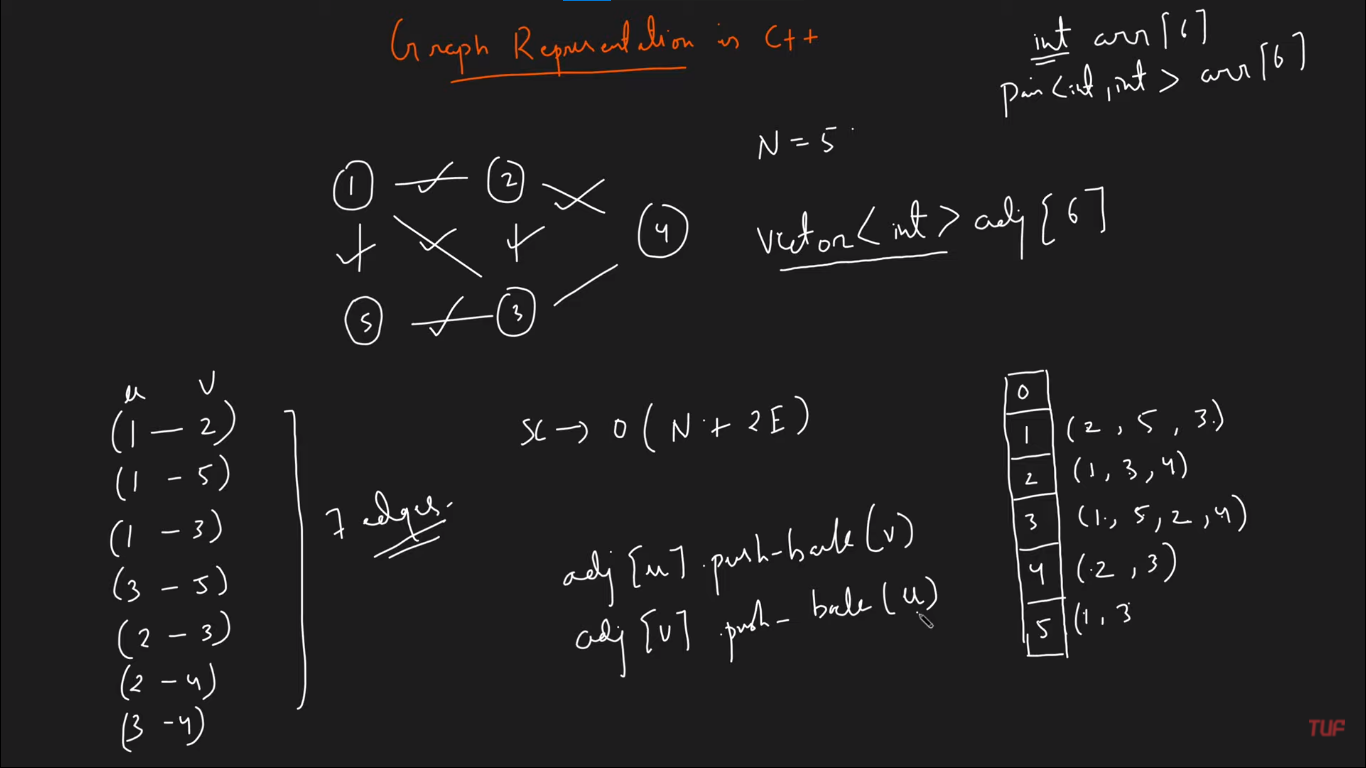 Graph Representation in C++
int arr[6]
pair<int, int> arr[6]
N = 5
vector<int> adj[6]
1
2
4
5
3
u v
(1 — 2)
(1 – 5)
(1 – 3)
(3 – 5)
(2 – 3)
(2 – 4)
(3 – 4)
7 edges.
SC → O(N + 2E)
adj[u].push-back(v)
adj[v].push-back(u)
0
1 (2, 5, 3)
2 (1, 3, 4)
3 (1, 5, 2, 4)
4 (2, 3)
5 (1, 3
TUF